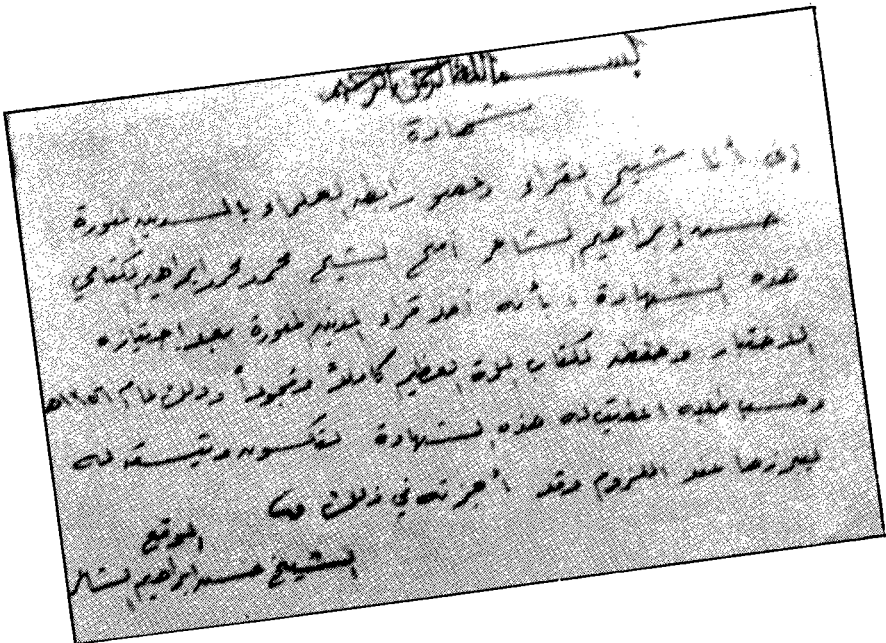 بسم الله الرحمن الرحيم
شهادة
إني أنا شيخ القراء وعضو رابطة العلماء بالمدينة المنورة
حسن إبراهيم الشاعر أمنح الشيخ محمد محمد إبراهيم الكتامي
هذه الشهادة بأنه أحد قراء المدينة المنورة بعد اجتيازه
الاختبار وحفظه لكتاب الله العظيم كاملاً ومجوداً وذلك عام
وحسب طلبه أعطيت له هذه الشهادة لتكون وثيقة له
ليبرزها عند اللزوم وقد أجزته في ذلك
الموقع
الشيخ حسن إبراهيم الشاعر